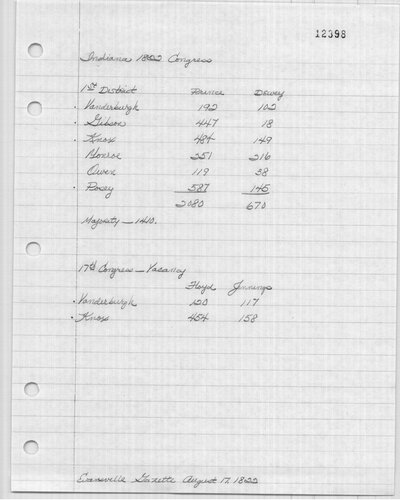 12398
Indiana 1822 Congress
1st District Prince Dewey
Vanderburgh 192 102
Gibson 447 18
Knox 484 149
Monroe 251 216
Owen 119 38
Posey 587 145
2080 670
Majority — 1410.
17th Congress — Vacancy
Floyd Jennings
Vanderburgh 120 117
Knox 454 158
Evansville Gazette August 17, 1822